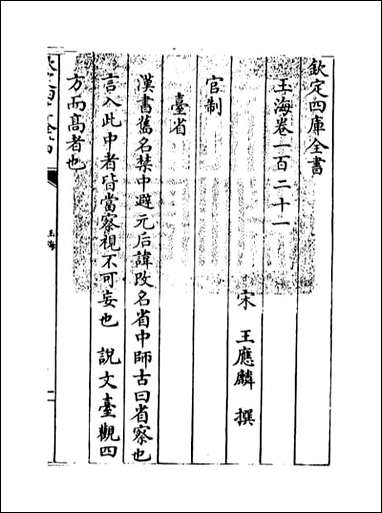 欽定四庫全書
玉海卷一百二十一
宋 王應麟 撰
官制
臺省
漢書舊名禁中避元后諱改名省中師古曰省察也
言入此中者皆當察視不可妄也 說文臺觀四
方而高者也
玉海